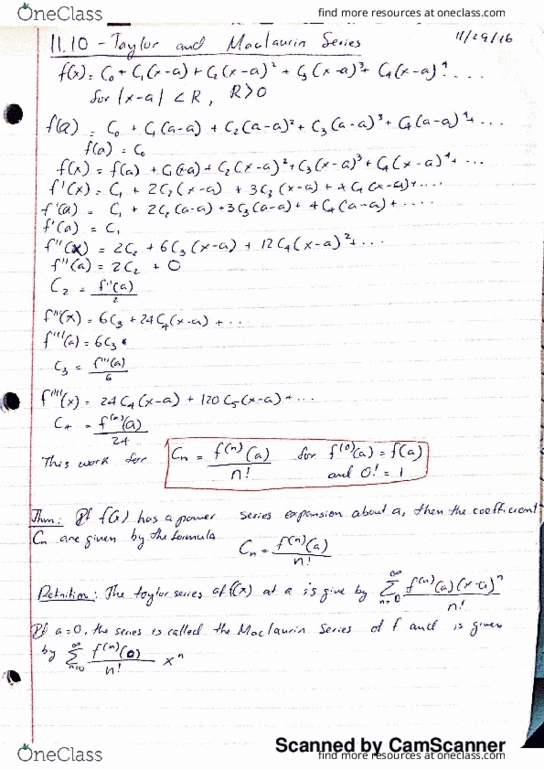 OneClass
find more resources at oneclass.com
11.10 - Taylor and Maclaurin Series
11/29/16
f(x) = C₀ + C₁(x-a) + C₂(x-a)² + C₃(x-a)³ + C₄(x-a)⁴ ...
for |x-a| < R, R>0
f(a) = C₀ + C₁(a-a) + C₂(a-a)² + C₃(a-a)³ + C₄(a-a)⁴ + ...
f(a) = C₀
f(x) = f(a) + C₁(x-a) + C₂(x-a)² + C₃(x-a)³ + C₄(x-a)⁴ + ...
f'(x) = C₁ + 2C₂(x-a) + 3C₃(x-a) + 4C₄(x-a) + ...
f'(a) = C₁ + 2C₂(a-a) + 3C₃(a-a) + 4C₄(a-a) + ...
f'(a) = C₁
f''(x) = 2C₂ + 6C₃(x-a) + 12C₄(x-a)² + ...
f''(a) = 2C₂ + 0
C₂ = f''(a)/2
f'''(x) = 6C₃ + 24C₄(x-a) + ...
f'''(a) = 6C₃
C₃ = f'''(a)/6
f''''(x) = 24C₄(x-a) + 120C₅(x-a) + ...
C₄ = f⁽ⁿ⁾(a)/24
This work for Cn = f⁽ⁿ⁾(a)/n! for f⁽⁰⁾(a) = f(a)
and 0! = 1
Thm: If f(x) has a power series expansion about a, then the coefficient
Cn are given by the formula
Cn = f⁽ⁿ⁾(a)/n!
Definition: The taylor series of f(x) at a is give by ∞∑n=0 f⁽ⁿ⁾(a)(x-a)ⁿ/n!
If a=0, the series is called the Maclaurin Series of f and is given
by ∞∑n=0 f⁽ⁿ⁾(0)/n! xⁿ
Scanned by CamScanner
OneClass
find more resources at oneclass.com